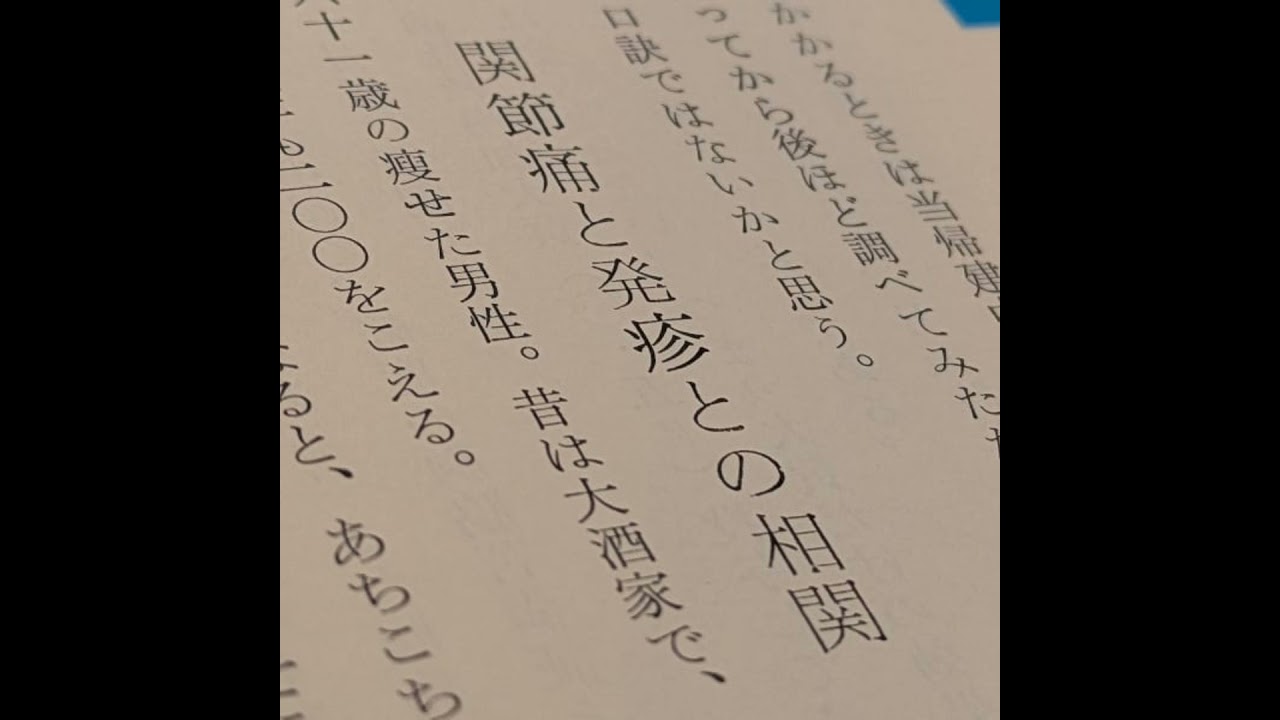 かかるときは当帰建
ってから後ほど調べてみた
口訣ではないかと思う。
関節痛と発疹との相関
十一歳の痩せた男性。昔は大酒家で、
も二〇〇をこえる。
ると、あちこち